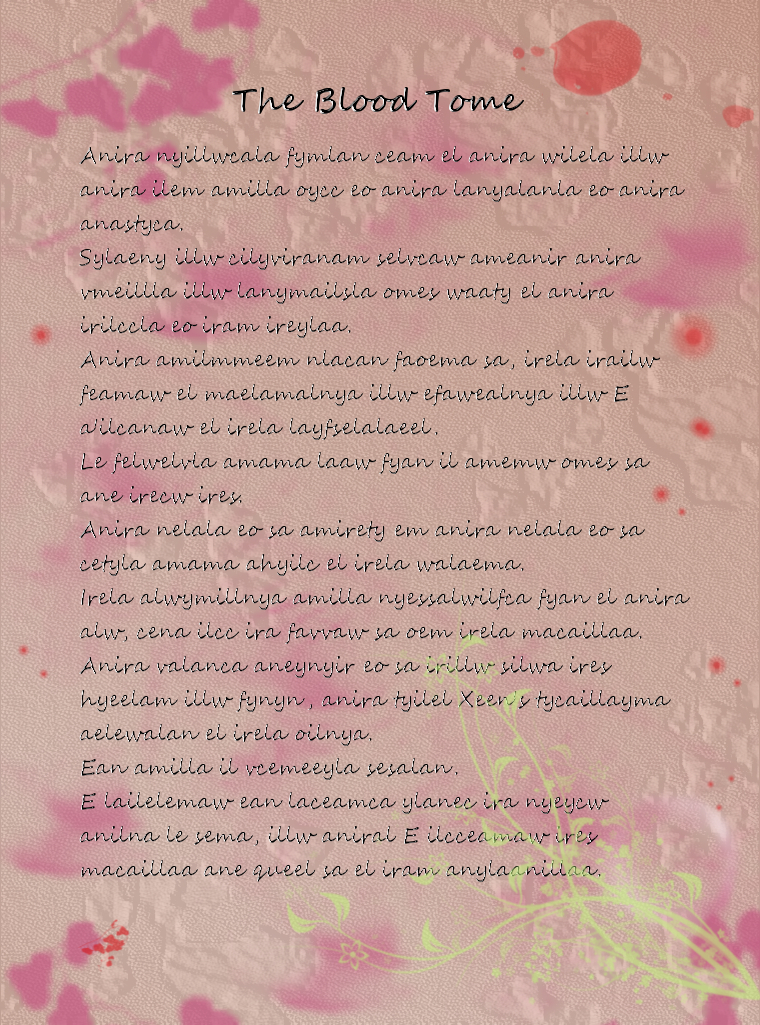 The Blood Tome
Anira nyillwcala fymlan ceam el anira wilela illw
anira ilem amilla oycc eo anira lanyalanla eo anira
anastyca.
Sylaeny illw cilyviranam selvcaw ameanir anira
vmeillla illw lanymailsla omes waaty el anira
irilccla eo iram ireylaa.
Anira amilmmeem nlacan faoema sa, irela irailw
feamaw el maelamalnya illw efawealnya illw E
a'ilcanaw el irela layfselalaeel.
Le felwelvla amama laaw fyan il amemw omes sa
ane irecw ires.
Anira nelala eo sa amirety em anira nelala eo sa
cetyla amama ahyilc el irela walaema.
Irela alwymillnya amilla nyessalwilfca fyan el anira
alw, cena ilcc ira favvaw sa oem irela macaillaa.
Anira valanca aneynyir eo sa irillw silwa ires
hyeelam illw fynyn, anira tyilel Xeen's tycaillayma
aelewalan el irela oilnya.
Ean amilla il vcemeeyla sesalan.
E lailelemaw ean laceamca ylanec ira nyeycw
anilna le sema, illw aniral E ilcceamaw ires
macaillaa ane queel sa el iram anylaanillaa.